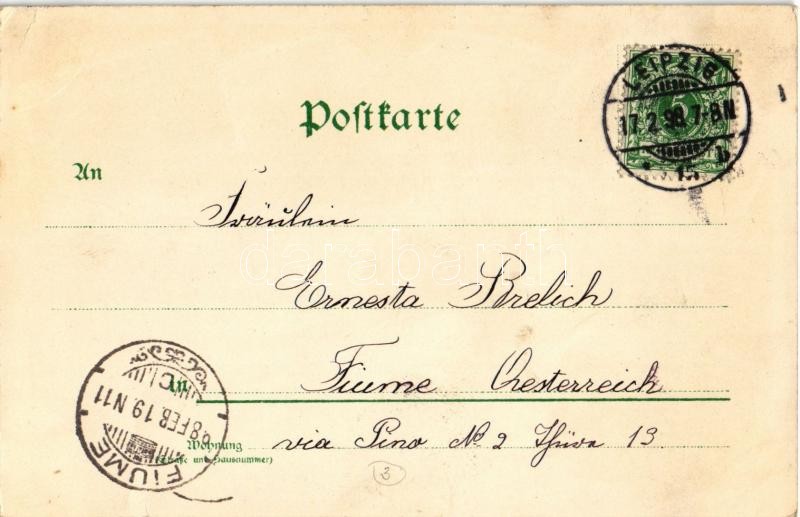 Postkarte
LEIPZIG
17.2.98.7-8N
b
An
Fräulein
Ernesta Brelich
in
Fiume Oesterreich
FIUME
98 FEB.19.N11
Wohnung
(Straße und Hausnummer)
via Pino № 2 Thüre 13
3
darabanth